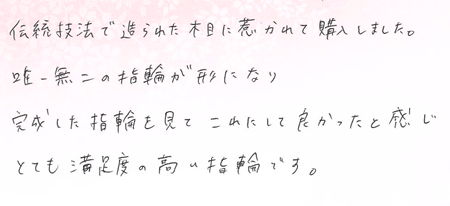 伝統技法で造られた木目に惹かれて購入しました。
唯一無二の指輪が形になり
完成した指輪を見て これにして良かったと感じ
とても満足度の高い指輪です。